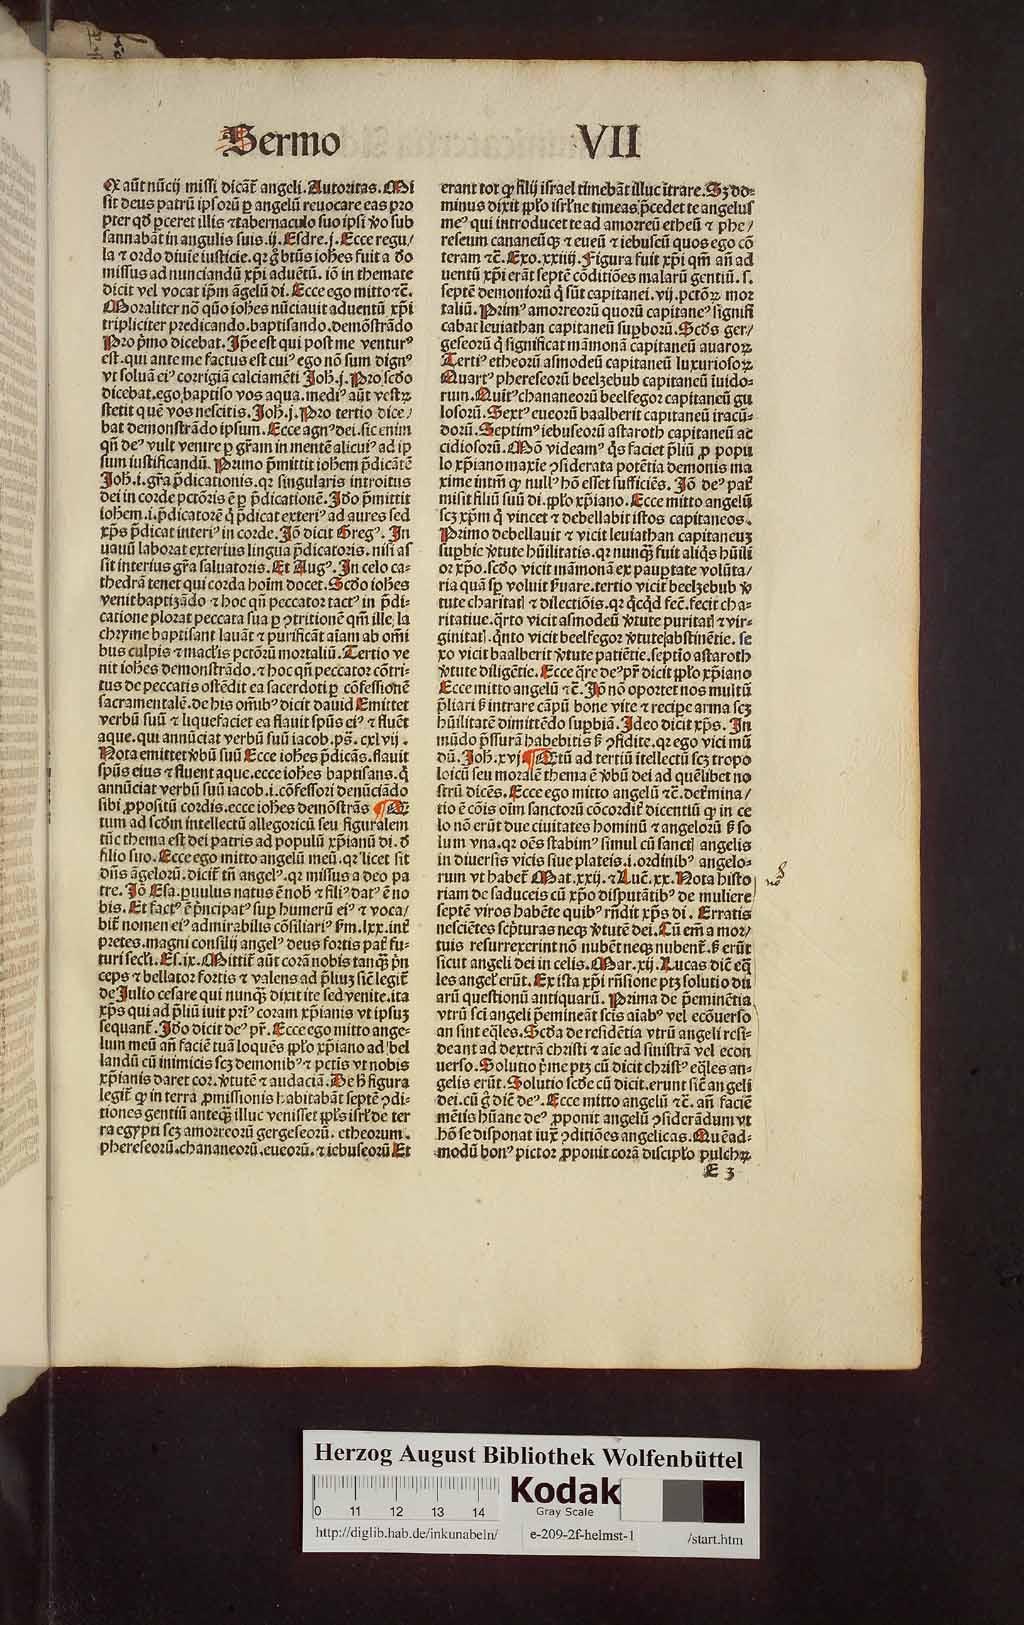 Sermo VII
Qꝛ aūt nūcij missi dicāt̄ angeli. Autoritas. Mi
sit deus patrū ipsoꝝ ꝑ angelū reuocare eas pro
pter qd̄ ꝑceret illis ⁊ tabernaculo suo ipsi ꝟo sub
sannabāt in angulis suis. ij. Esdre. j. Ecce regu/
la ⁊ ordo diuīe iusticie. qꝛ g̊ btūs ioh̄es fuit a deo
missus ad nunciandū xp̄i aduētū. iō in themate
dicit vel vocat ip̄m āgelū di. Ecce ego mitto ⁊c̄.
Moraliter nō qūo ioh̄es nūciauit aduentū xp̄i
tripliciter predicando. baptisando. demōstrādo
Pro p̄mo dicebat. Ip̄e est qui post me ventur⁹
est. qui ante me factus est cui⁹ ego nō sum dign⁹
vt soluā ei⁹ corrigiā calciamēti Joh̄. j. Pro scd̄o
dicebat. ego baptiso vos aqua. medi⁹ aūt vestꝝ
stetit quē vos nescitis. Joh̄. j. Pro tertio dice/
bat demonstrādo ipsum. Ecce agn⁹ dei. sic enim
qn̄ de⁹ vult venire ꝑ gr̄am in mentē alicui⁹ ad ip
sum iustificandū. Primo p̄mittit ioh̄em p̄dicātē
Joh̄. i. gr̄a p̄dicationis. qꝛ singularis introitus
dei in corde pctōris ē ꝑ p̄dicationē. Jdo p̄mittit
ioh̄em. i. p̄dicatorē q̇ p̄dicat exteri⁹ ad aures sed
xp̄s p̄dicat interi⁹ in corde. Jō dicit Greg⁹. In
uauū laborat exterius lingua p̄dicatoris. nisi as
sit interius gr̄a saluatoris. Et Aug⁹. In celo ca-
thedrā tenet qui corda hoīm docet. Scd̄o ioh̄es
venit baptizādo ⁊ hoc qn̄ peccator tact⁹ in p̄di-
catione plorat peccata sua ꝑ ꝯtritionē qm̄ ille, la
chryme baptisant lauāt ⁊ purificāt aīam ab om̄i
bus culpis ⁊ maclis pctōrū mortaliū. Tertio ve
nit ioh̄es demonstrādo. ⁊ hoc qn̄ peccator cōtri-
tus de peccatis ostēdit ea sacerdoti ꝑ cōfessionē
sacramentalē. de his om̄ib⁹ dicit dauid Emittet
verbū suū ⁊ liquefaciet ea flauit spūs ei⁹ ⁊ fluēt
aque. qui annūciat verbū suū iacob. ps̄. cxlvij.
Nota emittet ꝟbū suū Ecce ioh̄es p̄dicās. flauit
spūs eius ⁊ fluent aque. ecce ioh̄es baptisans. q̇
annūciat verbū suū iacob. i. cōfessori denūciādo
sibi ꝓpositū cordis. ecce ioh̄es demōstrās ¶ Qz
tum ad scd̄m intellectū allegoricū seu figuralem
tūc thema est dei patris ad populū xp̄ianū di. d̄
filio suo. Ecce ego mitto angelū meū. qꝛ licet sit
dn̄s āgelorū. dicit̄ tn̄ angel⁹. qꝛ missus a deo pa
tre. Jō Esa. ꝑuulus natus ē nob̄ ⁊ fili⁹ dat⁹ ē no
bis. Et fact⁹ ē p̄ncipat⁹ sup̄ humerū ei⁹ ⁊ voca/
bit̄ nomen ei⁹ admirabilis cōsiliari⁹ s̄m. lxx. int̄
pretes. magni consilij angel⁹ deus fortis pat̄ fu-
turi secl̄i. Es. ix. Mittit̄ aūt corā nobis tanqꝫ p̄n
ceps ⁊ bellator fortis ⁊ valens ad p̄liuꝫ sic̄ legit̄
de Julio cesare qui nunqꝫ dixit ite sed venite. ita
xp̄s qui ad p̄liū iuit pri⁹ coram xp̄ianis vt ipsuꝫ
sequant̄. Jdo dicit de⁹ pr̄. Ecce ego mitto ange-
lum meū an̄ faciē tuā loquēs pp̄lo xp̄iano ad bel
landū cū inimicis scꝫ demonib⁹ ⁊ pctīs vt nobis
xp̄ianis daret cor. ꝟtutē ⁊ audaciā. De h̄ figura
legit̄ ꝙ in terra ꝓmissionis habitabāt septē ꝯdi-
tiones gentiū anteqꝫ illuc venisset pp̄ls isrl̄ de ter
ra egypti scꝫ amorreorū gergeseorū. etheorum.
phereseorū. chananeorū. eueorū. ⁊ iebuseorū Et
erant tot ꝙ filij israel timebāt illuc ītrare. Sꝫ do-
minus dixit pp̄lo isrl̄ ne timeas, p̄cedet te angelus
me⁹ qui introducet te ad amorreū etheū ⁊ phe/
reseum cananeūqꝫ ⁊ eueū ⁊ iebuseū quos ego cō
teram ⁊c̄. Exo. xxiiij. Figura fuit xp̄i qm̄ an̄ ad
uentū xp̄i erāt septē cōditiōes malarū gentiū. s.
septē demoniorū q̇ sūt capitanei. vij. pctōꝝ mor
taliū. Prim⁹ amorreorū quorū capitane⁹ signifi
cabat leuiathan capitaneū suꝑborū. Scd̄s ger/
geseorū q̇ significat māmonā capitaneū auaroꝝ
Terti⁹ etheorū asmodeū capitaneū luxuriosoꝝ
Quart⁹ phereseorū beelzebub capitaneū iuido-
rum. Quit⁹ chananeorū beelfegor capitaneū gu
losorū. Sext⁹ eueorū baalberit capitaneū iracū-
dorū. Septim⁹ iebuseorū astaroth capitaneū ac
cidiosorū. Mō videam⁹ qd̄s faciet p̄liū ꝓ popu
lo xp̄iano maxīe ꝯsiderata potētia demonis ma
xime intm̄ ꝙ null⁹ hō esset sufficiēs. Jō de⁹ pat̄
misit filiū suū di. pp̄lo xp̄iano. Ecce mitto angelū
scꝫ xp̄m q̇ vincet ⁊ debellabit istos capitaneos.
Primo debellauit ⁊ vicit leuiathan capitaneuꝫ
suꝑbie ꝟtute hūilitatis. qꝛ nunqꝫ fuit aliq̇s hūili
or xp̄o. scd̄o vicit māmonā ex pauꝑtate volūta/
ria quā sꝑ voluit ẜuare. tertio vicit beelzebub ꝟ
tute charitatꝭ ⁊ dilectiōis. qꝛ qcqd̄ fec̄. fecit cha-
ritatiue. q̄rto vicit asmodeū ꝟtute puritatꝭ ⁊ vir-
ginitatꝭ. q̄nto vicit beelfegor ꝟtute abstinētie. se
xo vicit baalberit ꝟtute patiētie. septīo astaroth
ꝟtute diligētie. Ecce q̄re de⁹ pr̄ dicit pp̄lo xp̄iano
Ecce mitto angelū ⁊c̄. Jō nō oportet nos multū
p̄liari ẜ intrare cāpū bone vite ⁊ recipe arma scꝫ
hūilitatē dimittēdo suꝑbiā. Jdeo dicit xp̄s. In
mūdo p̄ssurā habebitis ẜ ꝯfidite. qꝛ ego vici mū
dū. Joh̄. xvj ¶ Qtū ad tertiū ītellectū scꝫ tropo
loicū seu moralē thema ē ꝟbū dei ad quēlibet no
strū dicēs. Ecce ego mitto angelū ⁊c̄. det̄mina/
tio ē cōis oīm sanctorū cōcordit̄ dicentiū ꝙ in ce
lo nō erūt due ciuitates hominū ⁊ angelorū ẜ so
lum vna. qꝛ oēs stabim⁹ simul cū sanctꝭ angelis
in diuersis vicis siue plateis. i. ordinib⁹ angelo-
rum vt habet̄ Mat. xxij. ⁊ Luc̄. xx. Nota histo
riam de saduceis cū xp̄o disputātib⁹ de muliere
septē viros habēte quib⁹ rn̄dit xp̄s di. Erratis
nesciētes scpturas neqꝫ ꝟtutē dei. Cū em̄ a mor/
tuis resurrexerint nō nubēt neqꝫ nubent̄. ẜ erūt
sicut angeli dei in celis. Mar. xij. Lucas dic̄ eq̄
les angel̄ erūt. Ex ista xp̄i rn̄sione ptꝫ solutio du
arū questionū antiquarū. Prima de p̄eminētia
vtrū sci angeli p̄emineāt scīs aīab⁹ vel ecōuerso
an sint eq̄les. Scd̄a de residētia vtrū angeli resi-
deant ad dextrā christi ⁊ aīe ad sinistrā vel econ
uerso. Solutio p̄me ptꝫ cū dicit christ⁹ eq̄les an-
gelis erūt. Solutio scd̄e cū dicit. erunt sic̄ angeli
dei. cū g̊ dic̄ de⁹. Ecce mitto angelū ⁊c̄. an̄ faciē
mētis hūane de⁹ ꝓponit angelū ꝯsiderādum vt
hō se disponat iux̄ ꝯditiōes angelicas. Quēad-
modū bon⁹ pictor ꝓponit corā discip̄lo pulchꝝ
E 3
Herzog August Bibliothek Wolfenbüttel
0 11 12 13 14
Kodak
Gray Scale
http://diglib.hab.de/inkunabeln/ e-209-2f-helmst-1 /start.htm